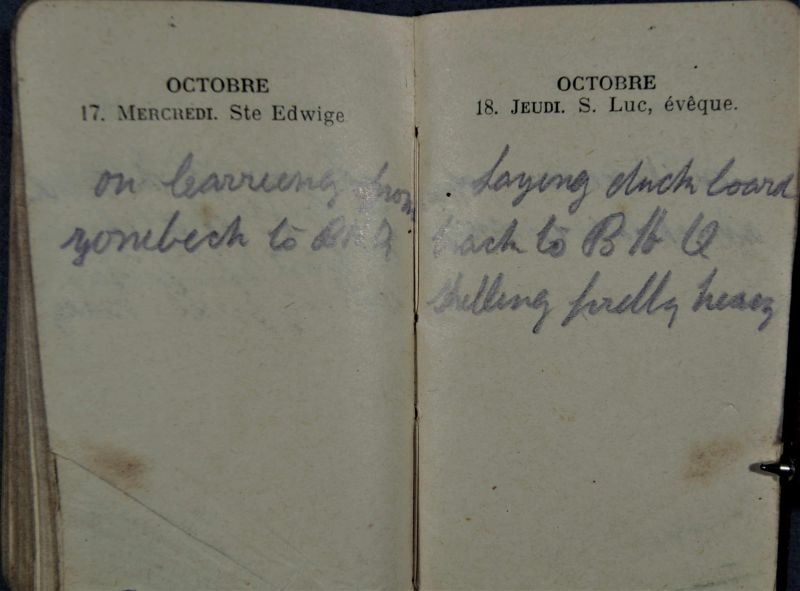 OCTOBRE
17. MERCREDI. Ste Edwige
on carrieng from
zonebech to
OCTOBRE
18. JEUDI. S. Luc, évêque.
Laying duck board
track to B H Q
Shelling pretty heavy